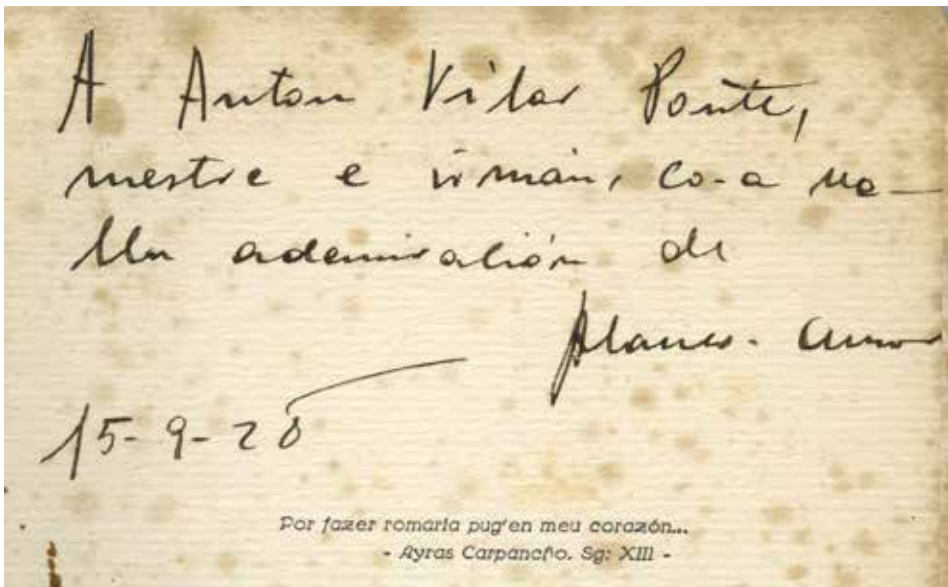 A Anton Vilar Ponte,
mestre e irmán, co-a ve-
lla ademiración de
Blanco-Amor
15-9-28
Por fazer romaria pug'en meu corazón...
- Ayras Carpancho. Sg: XIII -